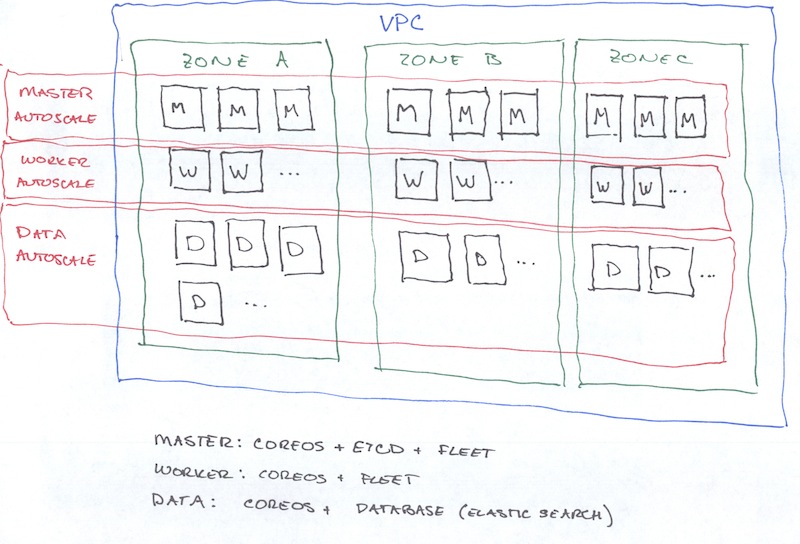 VPC
ZONE A ZONE B ZONE C
MASTER
AUTOSCALE
M M M M M M M M M
WORKER
AUTOSCALE
W W ... W W ... W W ...
DATA
AUTOSCALE
D D D D D ... D D ...
D ...
MASTER: COREOS + ETCD + FLEET
WORKER: COREOS + FLEET
DATA: COREOS + DATABASE (ELASTIC SEARCH)